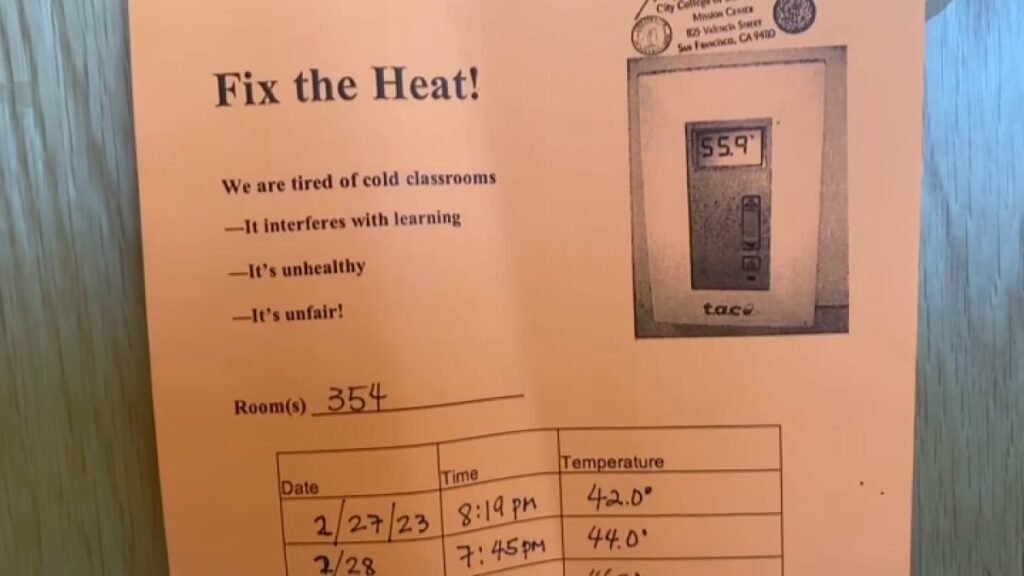 City College of
Mission Center
1125 Valencia Street
San Francisco, CA 94110
Fix the Heat!
55.9°
We are tired of cold classrooms
—It interferes with learning
—It's unhealthy
—It's unfair!
taco
Room(s) 354
Date Time Temperature
2/27/23 8:19 PM 42.0°
2/28 7:45PM 44.0°